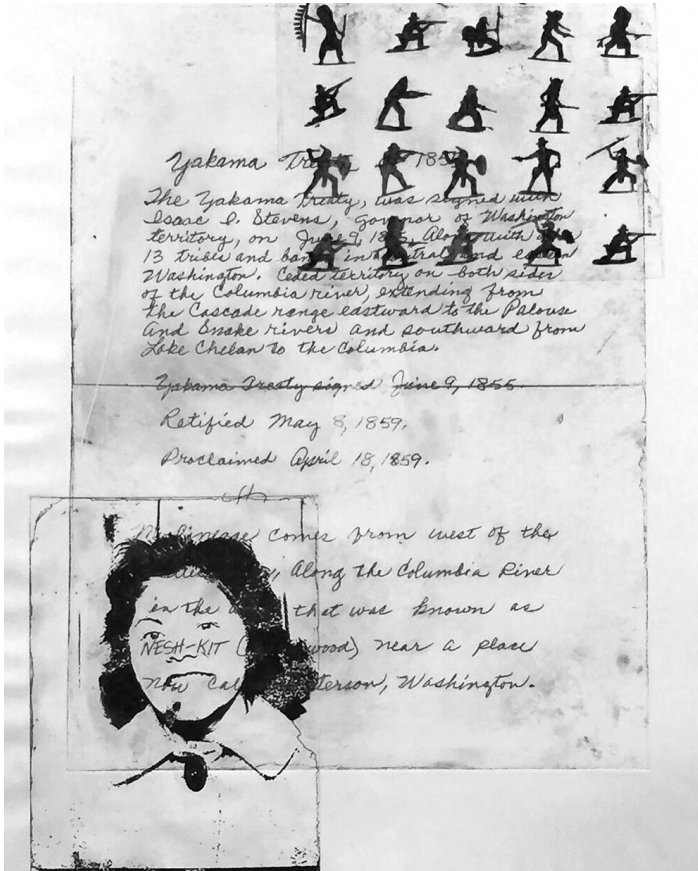 Yakama Treaty 185
The Yakama Treaty, was signed with
Isaac I. Stevens, govenor of Washington
territory, on June 9, 1855, Along with
13 tribes and bands in central and eastern
Washington. Ceded territory on both sides
of the Columbia river, extending from
the Cascade range eastward to the Palouse
And Snake rivers and southward from
Lake Chelan to the Columbia.
Yakama Treaty signed June 9, 1855.
Ratified May 8, 1859.
Proclaimed April 18, 1859.
My lineage comes from west of the
Along the Columbia River
in the that was known as
NESH-KIT ( wood) near a place
now terson, Washington.